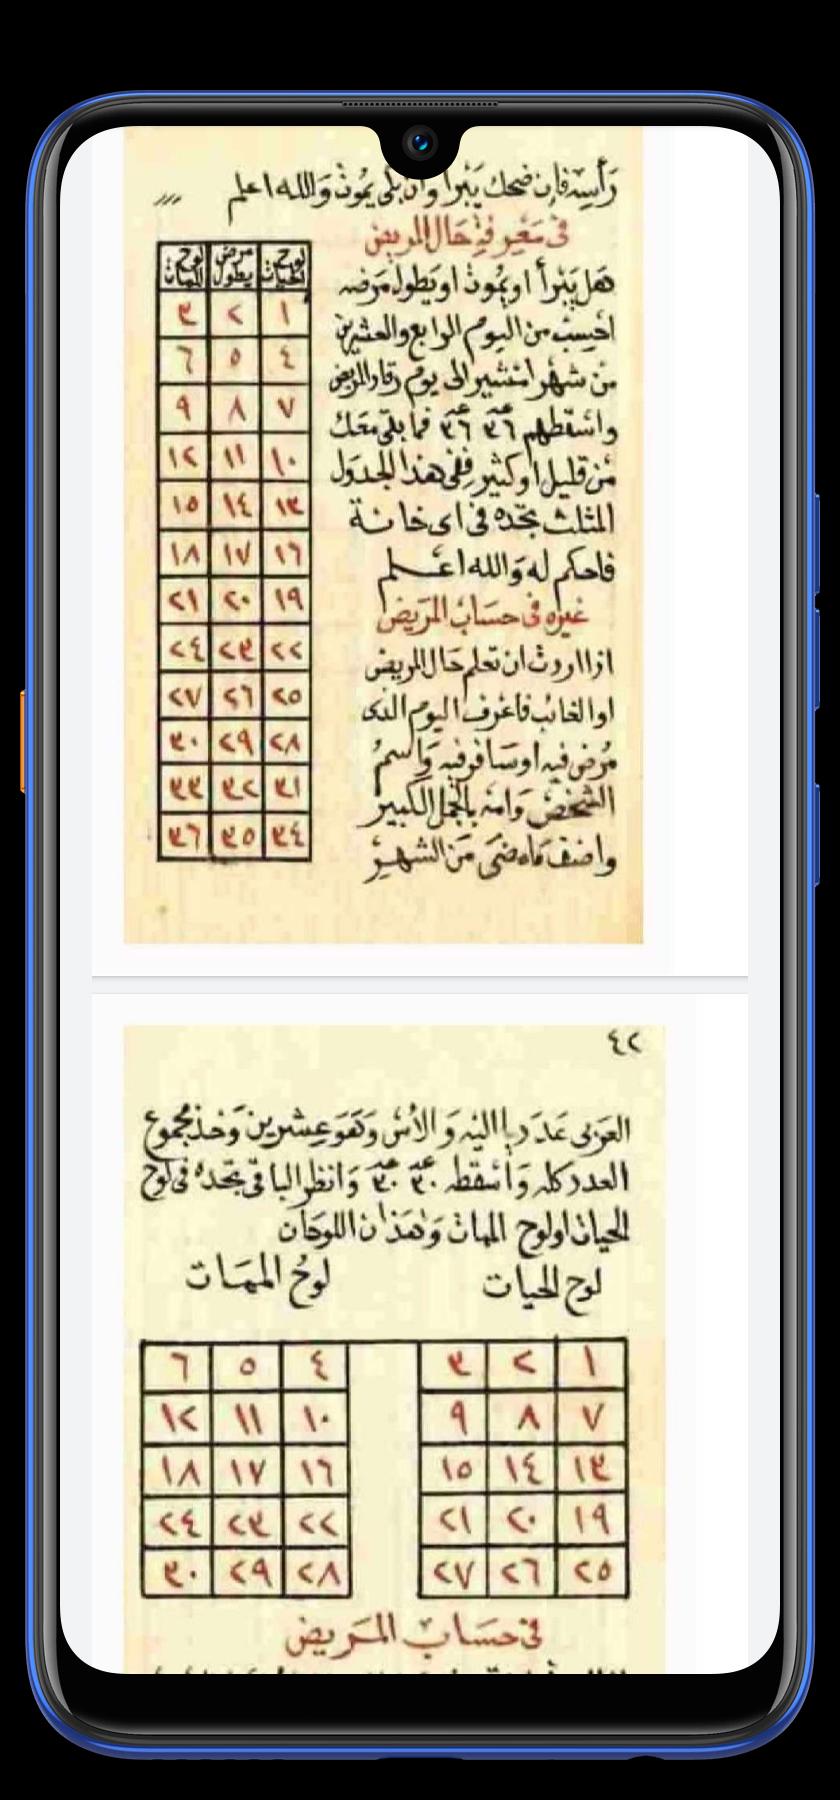 رأسه فإن ضحك يبرأ وان بكى يموت والله اعلم
فى معرفة حال المريض
هل يبرأ او يموت او يطول مرضه
احسب من اليوم الرابع والعشرين
من شهر امشير الى يوم رقاد المريض
واسقطهم ٣٦ ٣٦ فما بقى معك
من قليل او كثير ففى هذا الجدول
المثلث تجده فى اى خانة
فاحكم له والله اعلم
غيره فى حساب المريض
اذا اردت ان تعلم حال المريض
او الغائب فاعرف اليوم الذى
مرض فيه او سافر فيه واسم
الشخص وامه بالجمل الكبير
واضف ما مضى من الشهر
لوح الحيات مرض يطول لوح الممات
١ ٢ ٣
٤ ٥ ٦
٧ ٨ ٩
١٠ ١١ ١٢
١٣ ١٤ ١٥
١٦ ١٧ ١٨
١٩ ٢٠ ٢١
٢٢ ٢٣ ٢٤
٢٥ ٢٦ ٢٧
٢٨ ٢٩ ٣٠
٣١ ٣٢ ٣٣
٣٤ ٣٥ ٣٦
٤٢
العربى عدد يا اليه والأس وهو عشرين وخذ مجموع
العدد كله واسقطه ٣٠ ٣٠ وانظر الباقى تجده فى لوح
الحيات او لوح الممات وهذان اللوحان
لوح الحيات لوح الممات
١ ٢ ٣ ٤ ٥ ٦
٧ ٨ ٩ ١٠ ١١ ١٢
١٣ ١٤ ١٥ ١٦ ١٧ ١٨
١٩ ٢٠ ٢١ ٢٢ ٢٣ ٢٤
٢٥ ٢٦ ٢٧ ٢٨ ٢٩ ٣٠
فى حساب المريض